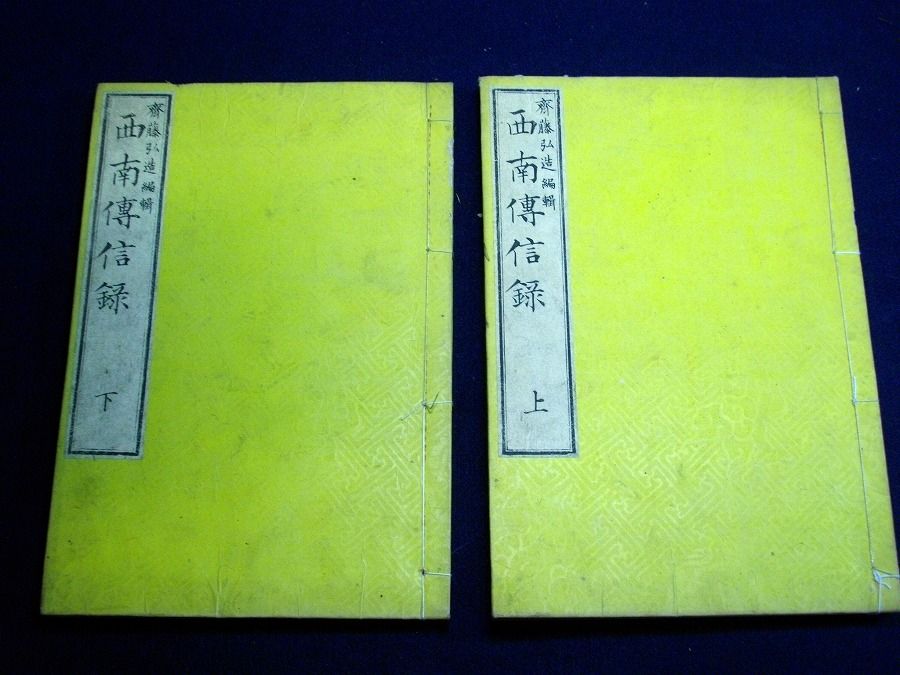 齋藤弘造編輯
西南傳信録
上
齋藤弘造編輯
西南傳信録
下